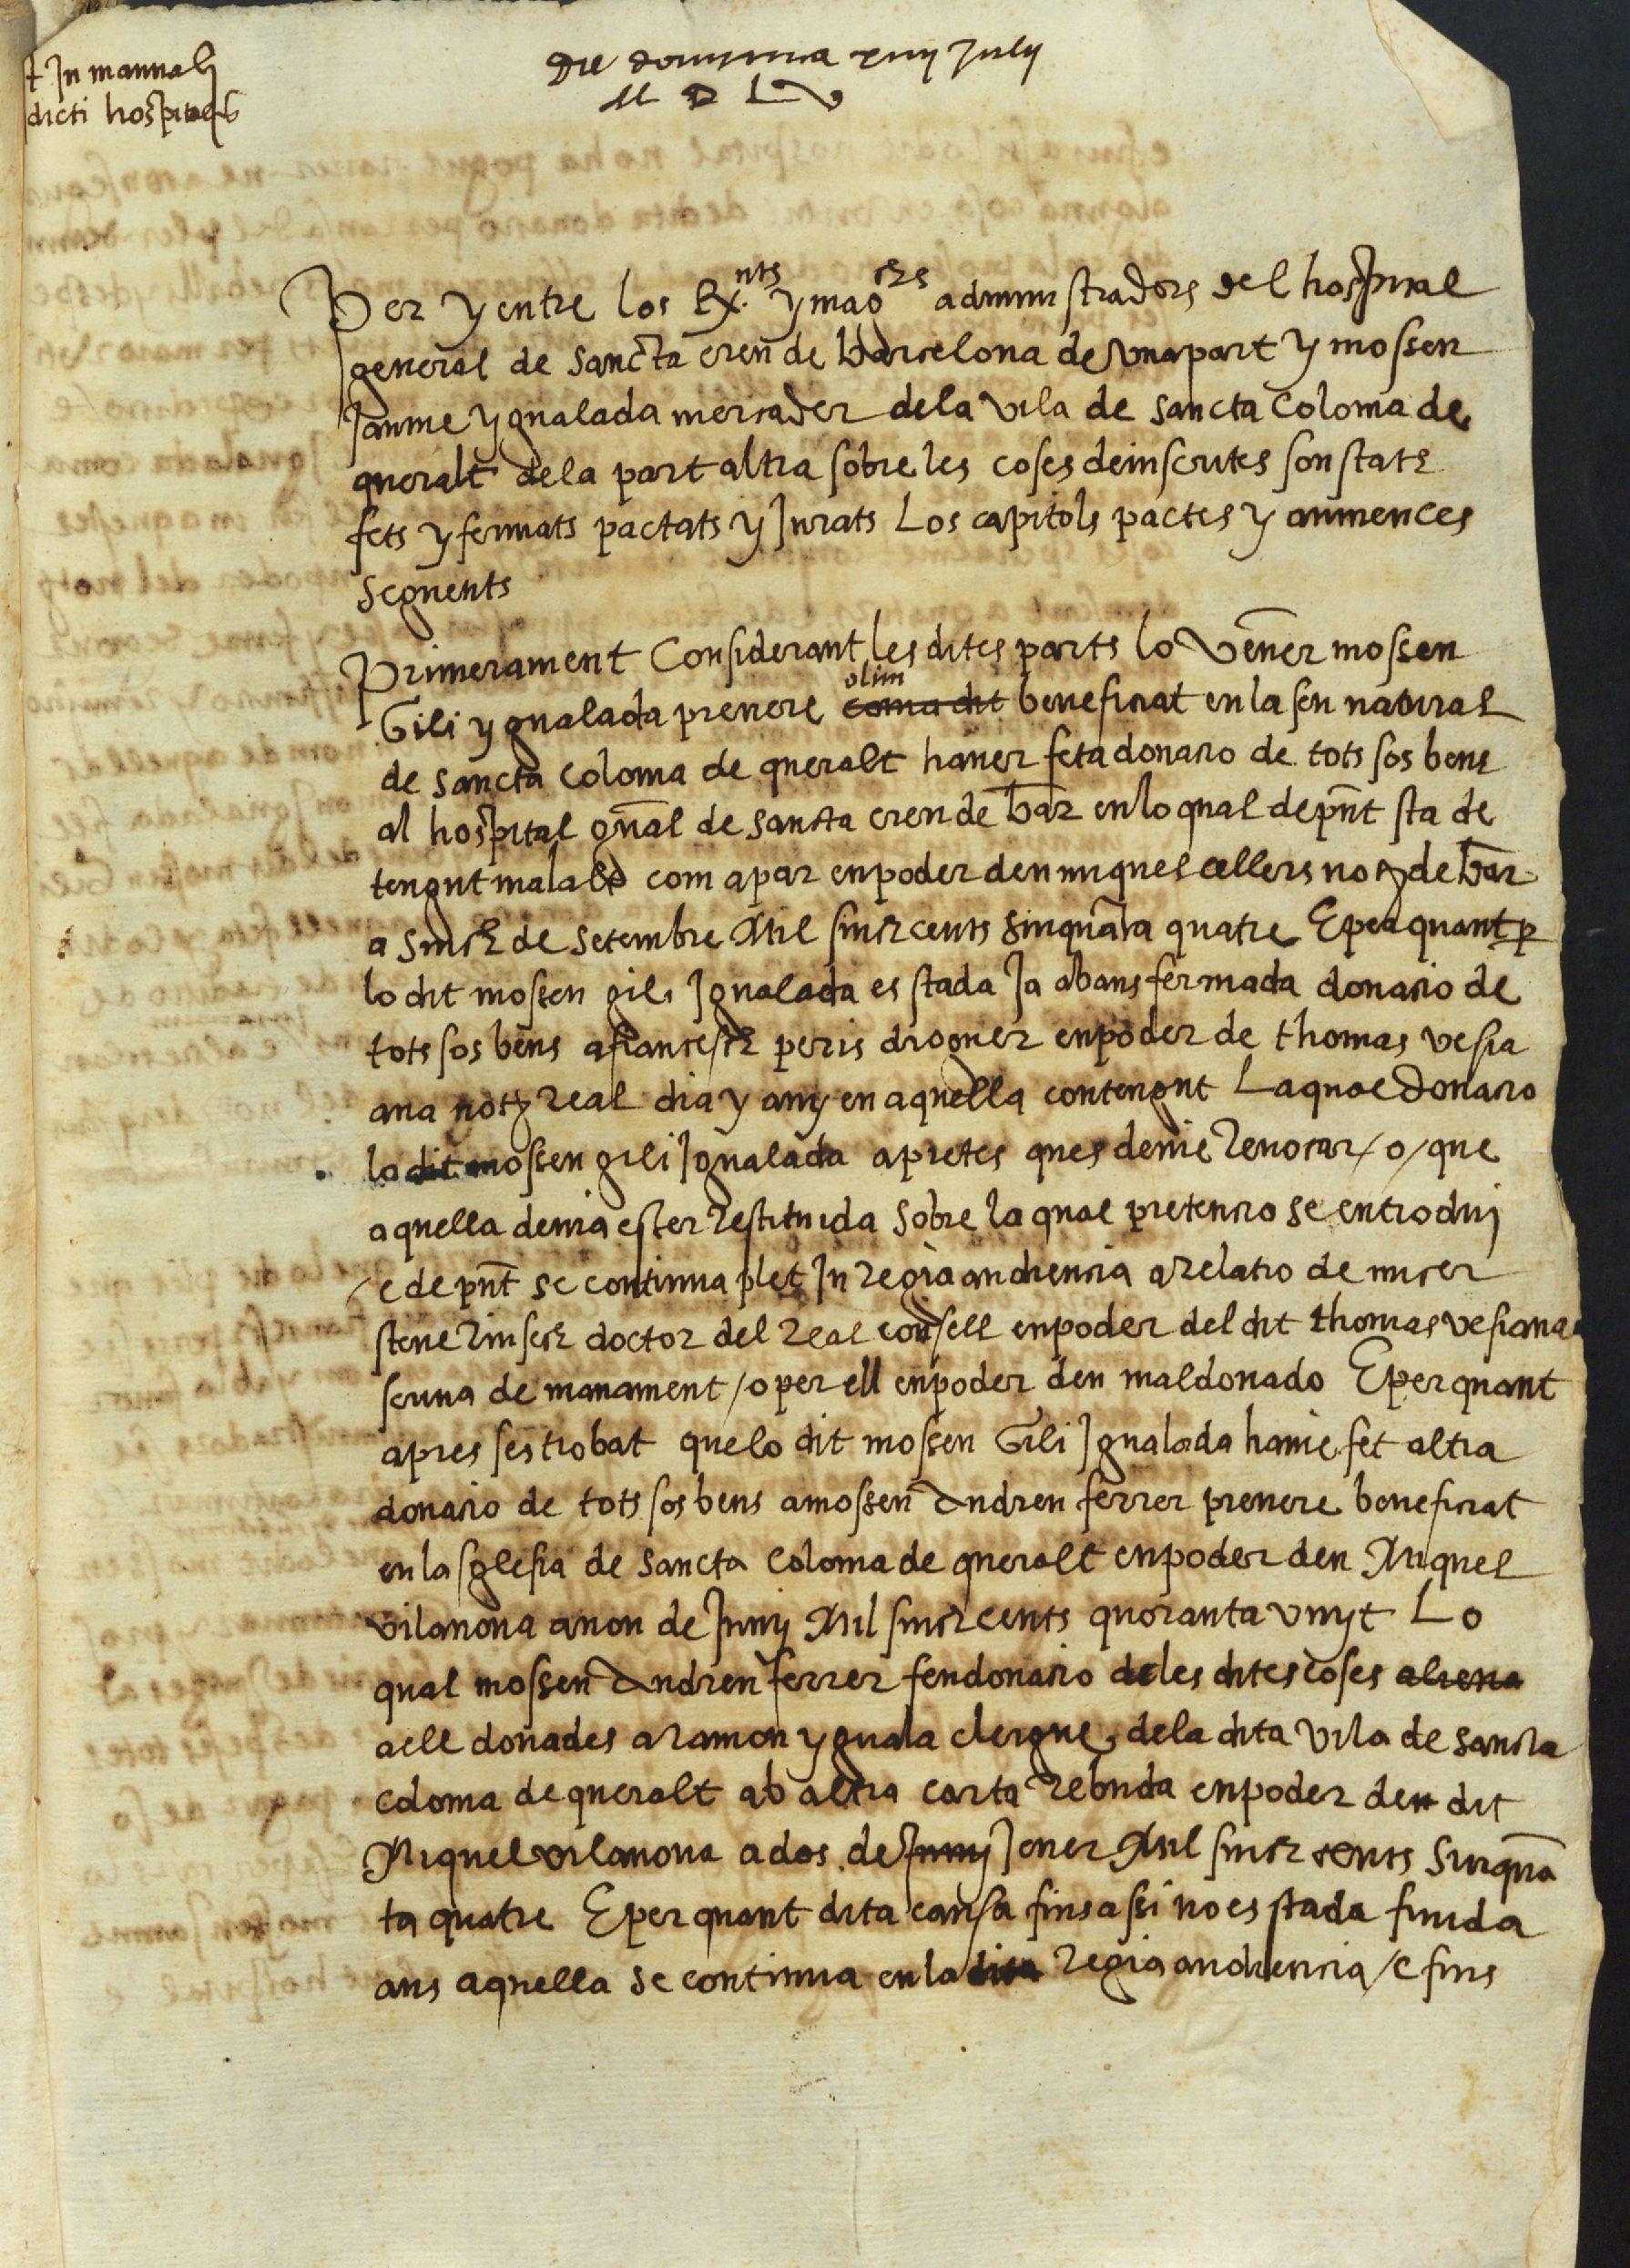 + In manuali
dicti hospitalis
Die dominica xiiij July
M D L V
Per y entre los Rx.nts y mag.chs administradors del hospital
general de sancta creu de barcelona de una part y mossen
Jaume ygualada mercader de la vila de sancta Coloma de
queralt de la part altra sobre les coses deinscrites son stats
fets y fermats pactats y Jurats Los capitols pactes y auinences
seguents
Primerament Considerant les dites parts lo Vener mossen
Gili ygualada preuere olim coma dit beneficiat en la seu natural
de sancta coloma de queralt hauer feta donatio de tots sos bens
al hospital gnal de sancta creu de bar en lo qual de pnt sta de
tengut malalt com apar en poder den miquel cellers not de bar
a sinch de setembre Mil sinch cents sinquāta quatre E per quant p
lo dit mossen gili Jgualada es stada Ja abans fermada donatio de
tots sos bens a francesch peris droguer en poder de thomas vesia
ana not real dia y any en aquella contengut La qual donatio
lo dit mossen gili Jgualada a pretes ques deuie reuocar / o / que
aquella deuia esser restituida sobre la qual pretencio se entrodui
e de pnt se continua plet In regia audiencia a relatio de micer
steue rinsech doctor del real consell en poder del dit thomas vesiana
scriua de manament / o per ell en poder den maldonado E per quant
apres ses trobat que lo dit mossen Gili Jgualada hauie fet altra
donatio de tots sos bens a mossen Andreu ferrer preuere beneficiat
en la sglesia de sancta coloma de queralt en poder den Miquel
vilanoua a nou de Juny Mil sinch cents quoranta vuyt Lo
qual mossen Andreu ferrer feu donatio de les dites coses aliena
a ell donades a ramon yguala clergue de la dita vila de sancta
coloma de queralt ab altra carta rebuda en poder den dit
Miquel vilanoua a dos de Juny Jener Mil sinch cents sinquā
ta quatre E per quant dita causa fins assi no es stada finida
ans aquella se continua en la dita regia audiencia / e fins